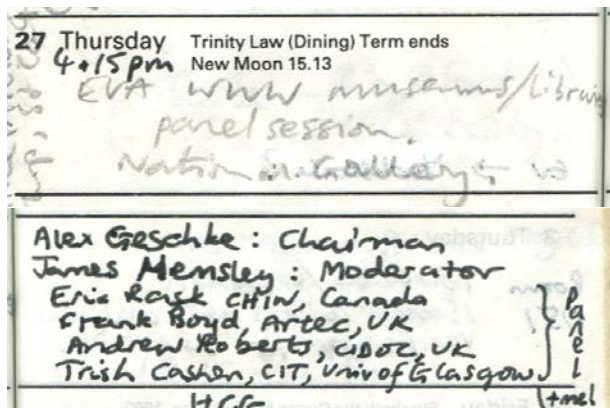 27 Thursday Trinity Law (Dining) Term ends
4.15pm New Moon 15.13
EVA WWW museums/library
panel session.
National Gallery
Alex Geschke: Chairman
James Hemsley: Moderator
Eric Rask CHIN, Canada
Frank Boyd, Artec, UK
Andrew Roberts, CIDOC, UK
Trish Cashen, CTI, Univ of Glasgow
Panel
+me!